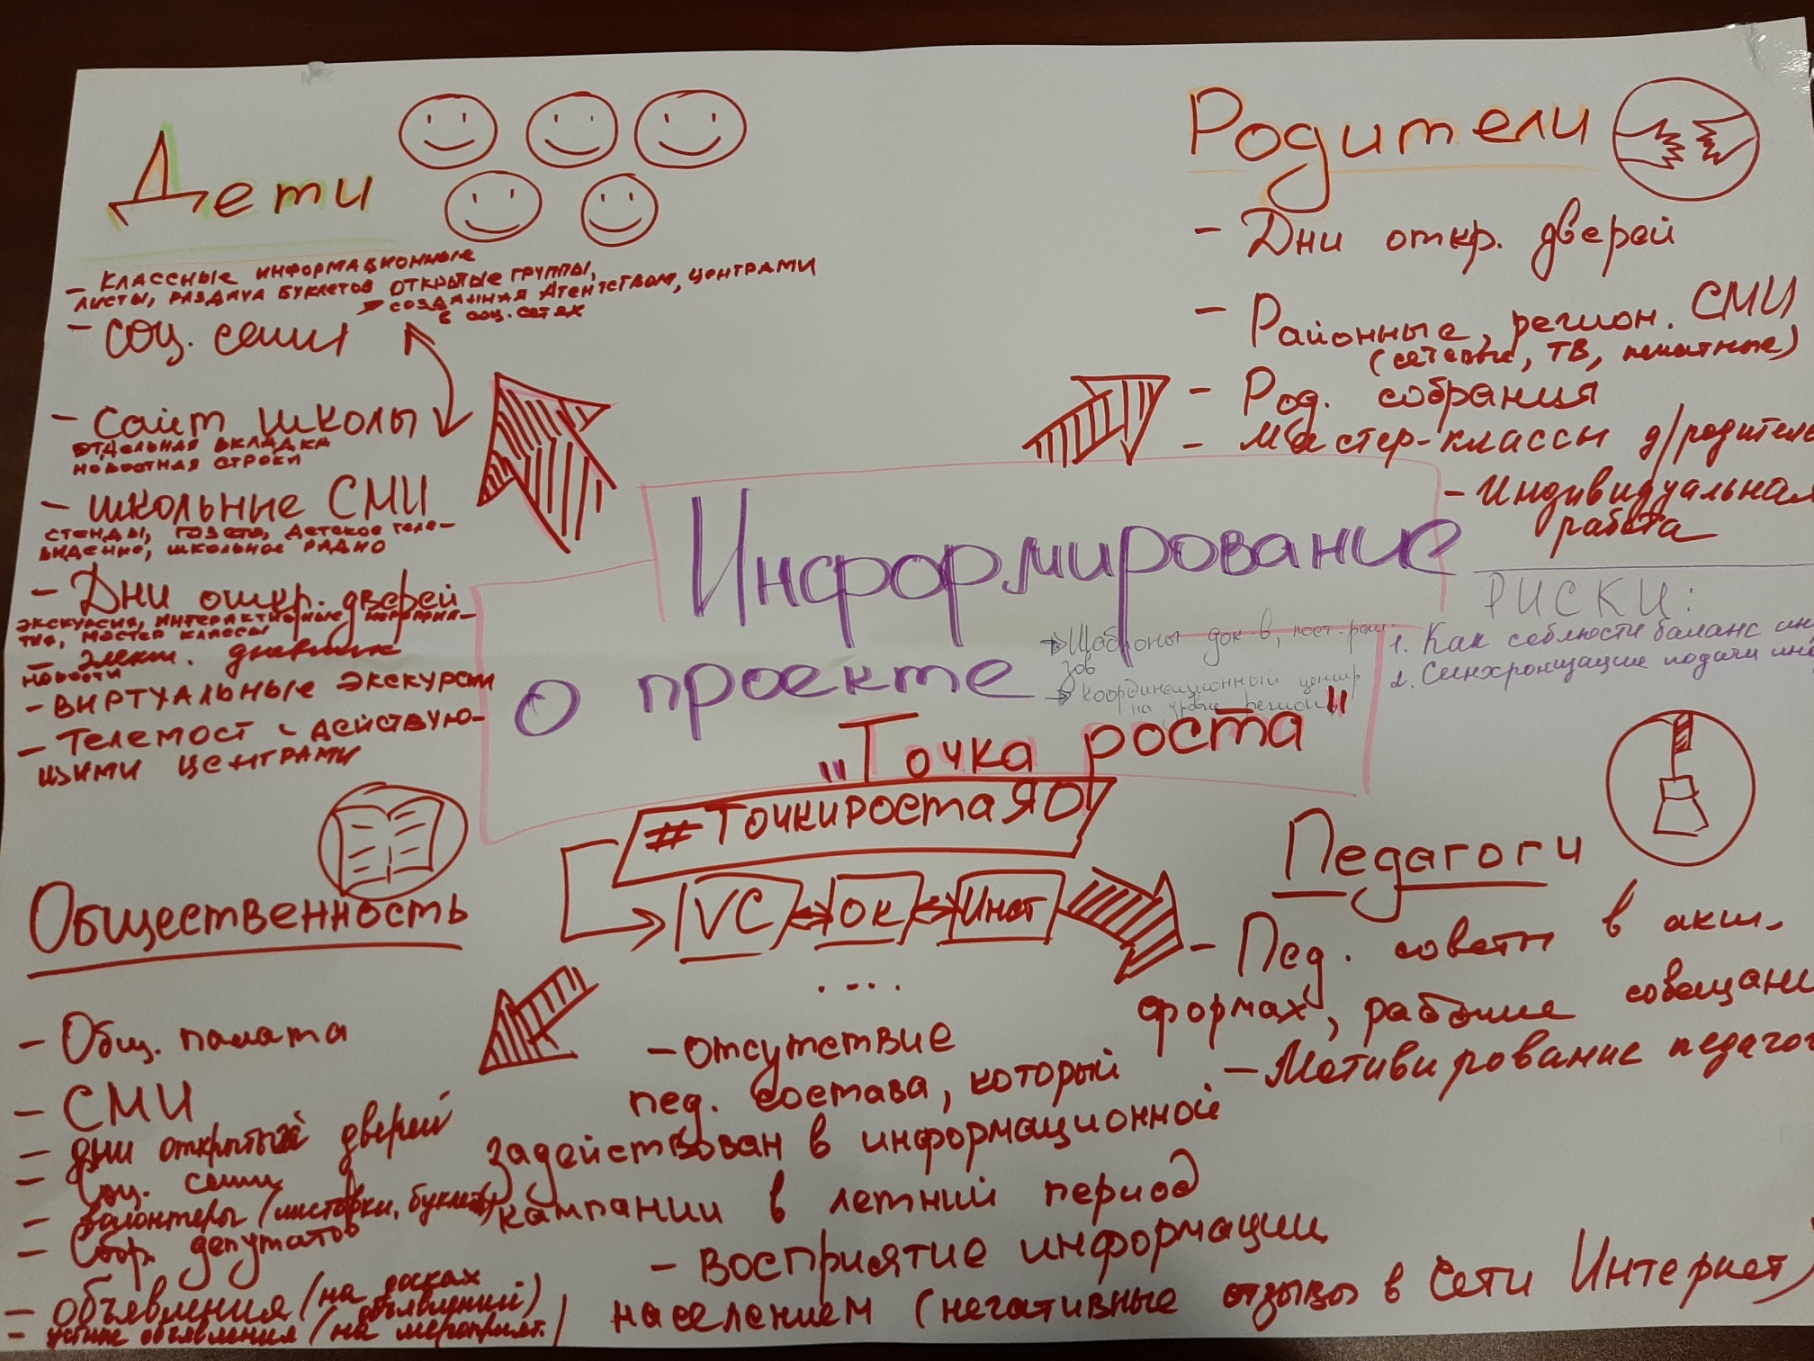 Дети
- классные информационные
листы, раздача буклетов открытые группы,
созданная Агентством, центрами
в соц. сетях
- Соц. сети
- Сайт школы
отдельная вкладка
новостная строки
- школьные СМИ
стенды, газета, детское теле-
видение, школьное радио
- Дни откр. дверей
экскурсия, интерактивные мероприя-
тия, мастер классы
- элект. дневник
новости
- виртуальные экскурсии
- Телемост с действую-
щими центрами
Родители
- Дни откр. дверей
- Районные, регион. СМИ
(сетевые, ТВ, печатные)
- Род. собрания
- Мастер-классы д/родителе
- Индивидуальная
работа
Информирование
о проекте
„Точка роста"
→ Шаблоны док-в, пост-рели-
зов
→ координационный центр
на уровне региона
РИСКИ:
1. Как соблюсти баланс ин
2. Синхронизация подачи инф
#ТочкиростаЯО
VC ↔ ОК ↔ Инст
....
Общественность
- Общ. палата
- СМИ
- дни открытых дверей
- Соц. сети
- волонтеры (листовки, буклеты)
- Собр. депутатов
- объявления (на досках
объявлений)
- устные объявления (на мероприят.)
Педагоги
- Пед. советы в акт.
формах, рабочие совещани
- Мотивирование педагог
- отсутствие
пед. состава, который
задействован в информационной
кампании в летний период
- восприятие информации
населением (негативные отзывы в Сети Интернет)